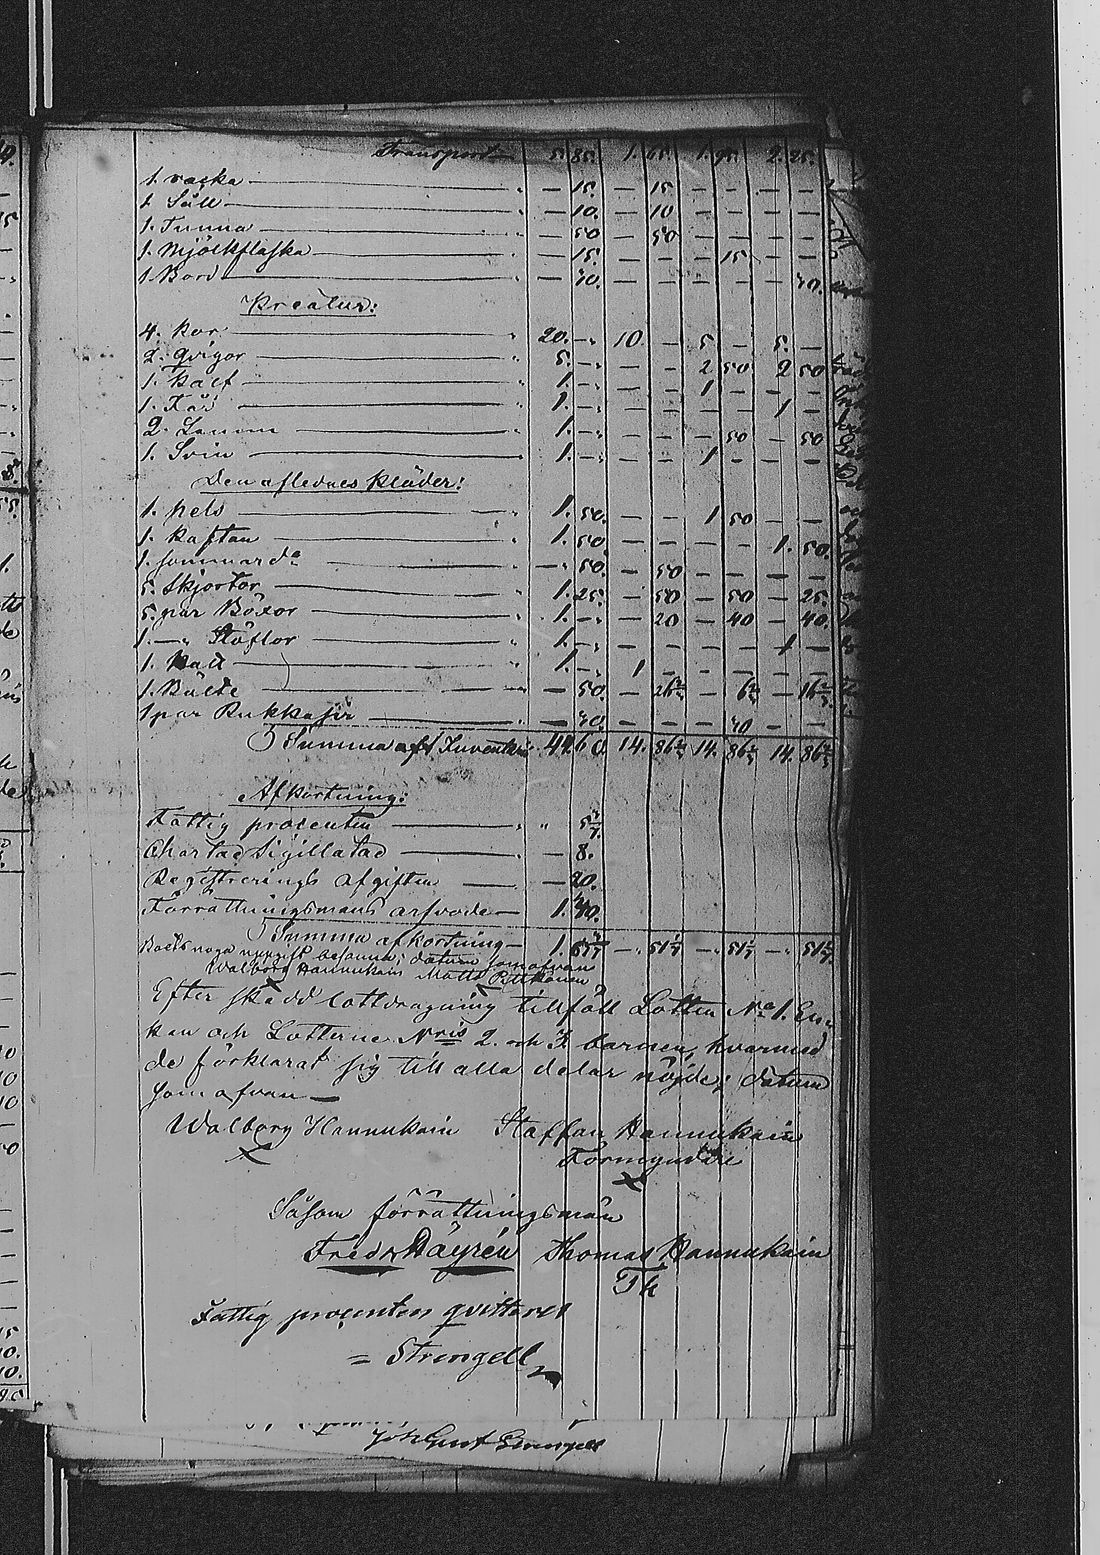 Transport 5. 85. 1. 65. 1. 95. 2. 25.
1. vacka — 15. — 15. — — — —
1. Såll — 10. — 10 — — — —
1. Tunna — 50 — 50 — — — —
1. Mjölkflaska — 15. — — — 15 — —
1. Bord — 40. — — — — — 40.
Kreatur:
4. Kor 20. — 10. — 5. — 5. —
2. Qvigor 5. — — — 2 50 2 50
1. Kalf 1. — — — 1 — — —
1. Får 1. — — — — — 1 —
2. Lamm 1. — — — — 50 — 50
1. Svin 1. — — — 1 — — —
Den aflednes Kläder:
1. pels 1. 50. — — 1 50 — —
1. Kaftan 1. 50 — — — — 1. 50.
1. sommar do — 50. — 50 — — — —
5. Skjortor 1. 25. — 50 — 50 — 25.
5. par Böxor 1. — — 20 — 40 — 40.
1. —„ Stöflor 1. — — — — — 1 —
1. 1. — 1 — — — — —
1. Bälte — 50. — 26 2/3 — 6 2/3 — 16 2/3
1 par Rukkasir — 40. — — — 40 — —
Summa af Inventarie 44. 60. 14. 86 2/3 14. 86 2/3 14. 86 2/3
Afkortning:
Fattig procenten „ 5 5/7.
Charta Sigillatad — 8.
Registrerings afgiften — 20.
Förrättningsmäns arfvode 1. 40.
Summa afkortning 1. — 51 — 51 — 51
riktigt datum som ofvan
Walborg Hannukain Matts Pitkänen
X X
Efter skedd lottdragning tillföll Lotten No 1. En-
kan och Lotterne Nris 2. och 3. barnen, hvarmed
de förklarat sig till alla delar nöjde; datum
som ofvan —
Walborg Hannukain Staffan Hannukain
X Förmyndare
X
Såsom förrättningsmän
Fredr Häyrén Thomas Hannukain
TH
Fattig procenten qvitteras
= Strengell
Joh Gust Strengell